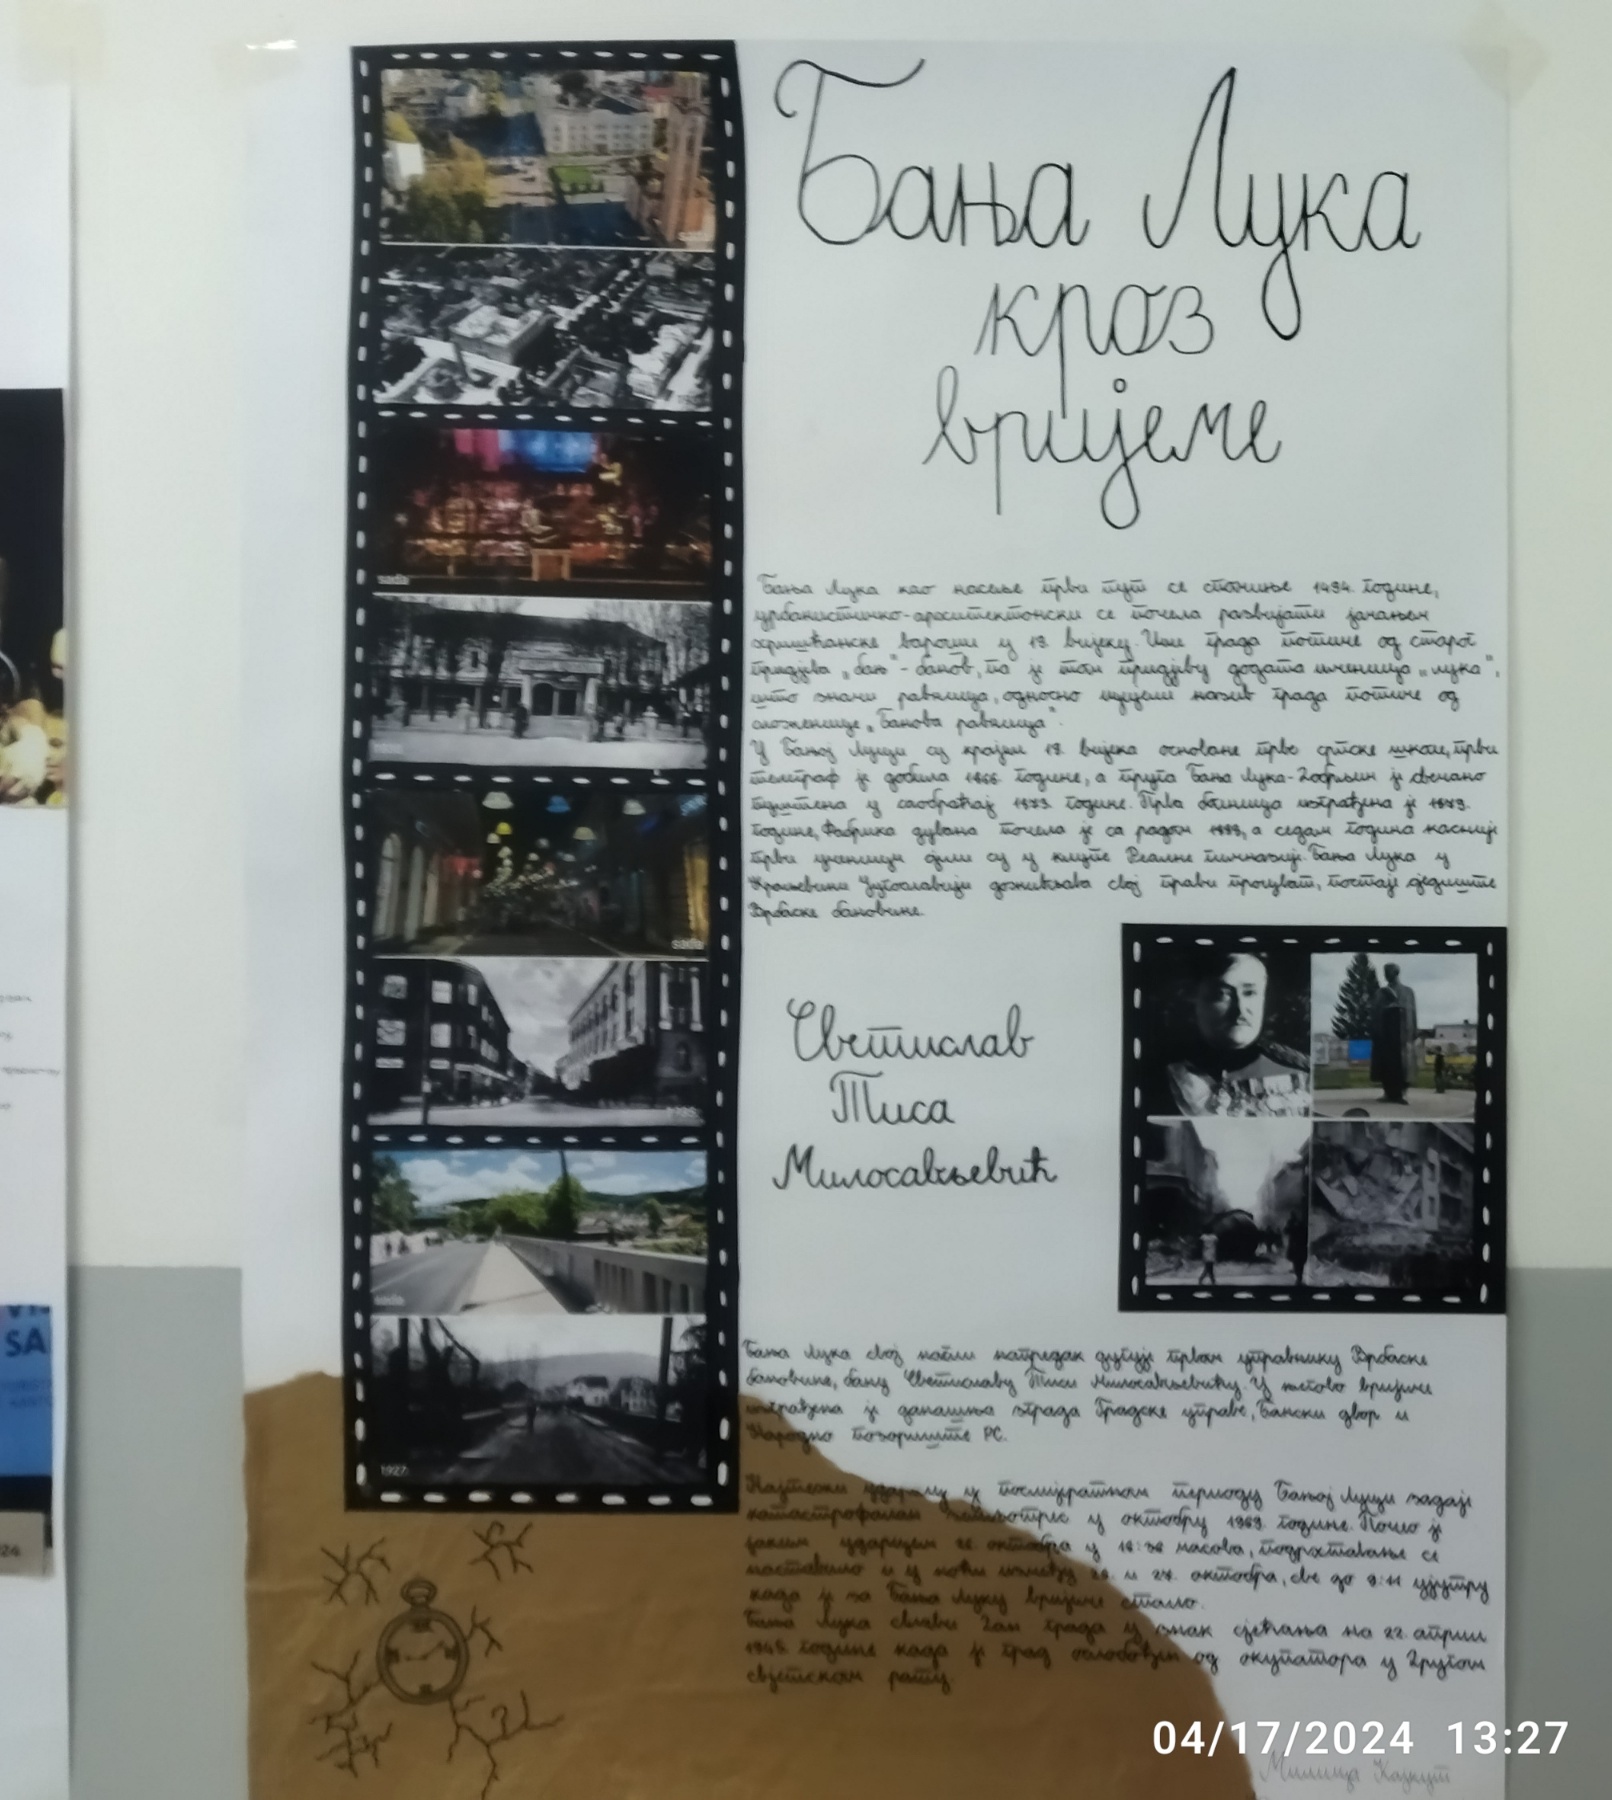 Бања Лука
кроз
вријеме
Бања Лука као насеље први пут се спомиње 1494. године,
урбанистичко-архитектонски се почела развијати јачањем
хришћанске вароши у 19. вијеку. Име града потиче од старог
придјева „бањ" - банов, па је том придјеву додата именица „лука",
што значи равница, односно цијели назив града потиче од
сложенице „Банова равница".
У Бањој Луци су крајем 19. вијека основане прве српске школе, први
телеграф је добила 1866. године, а пруга Бања Лука-Добрљин је свечано
пуштена у саобраћај 1873. године. Прва болница изграђена је 1879.
године, Фабрика дувана почела је са радом 1888, а седам година касније
први ученици сјели су у клупе Реалне гимназије. Бања Лука у
Краљевини Југославији доживљава свој прави процват, постаје сједиште
Врбаске бановине.
Светислав
Тиса
Милосављевић
Бања Лука свој нагли напредак дугује првом управнику Врбаске
бановине, бану Светиславу Тиси Милосављевићу. У његово вријеме
изграђена је данашња зграда Градске управе, Бански двор и
Народно позориште РС.
Најтежи ударац у послијератном периоду Бањој Луци задаје
катастрофалан земљотрес у октобру 1969. године. Почео је
јаким ударцем 26. октобра у 16:36 часова, подрхтавање се
наставило и у ноћи између 26. и 27. октобра, све до 9:11 ујутру
када је за Бања Луку вријеме стало.
Бања Лука слави Дан града у знак сјећања на 22. април
1945. године када је град ослобођен од окупатора у Другом
свјетском рату.
sada
sada
sada
1927
VI
SA
04/17/2024 13:27